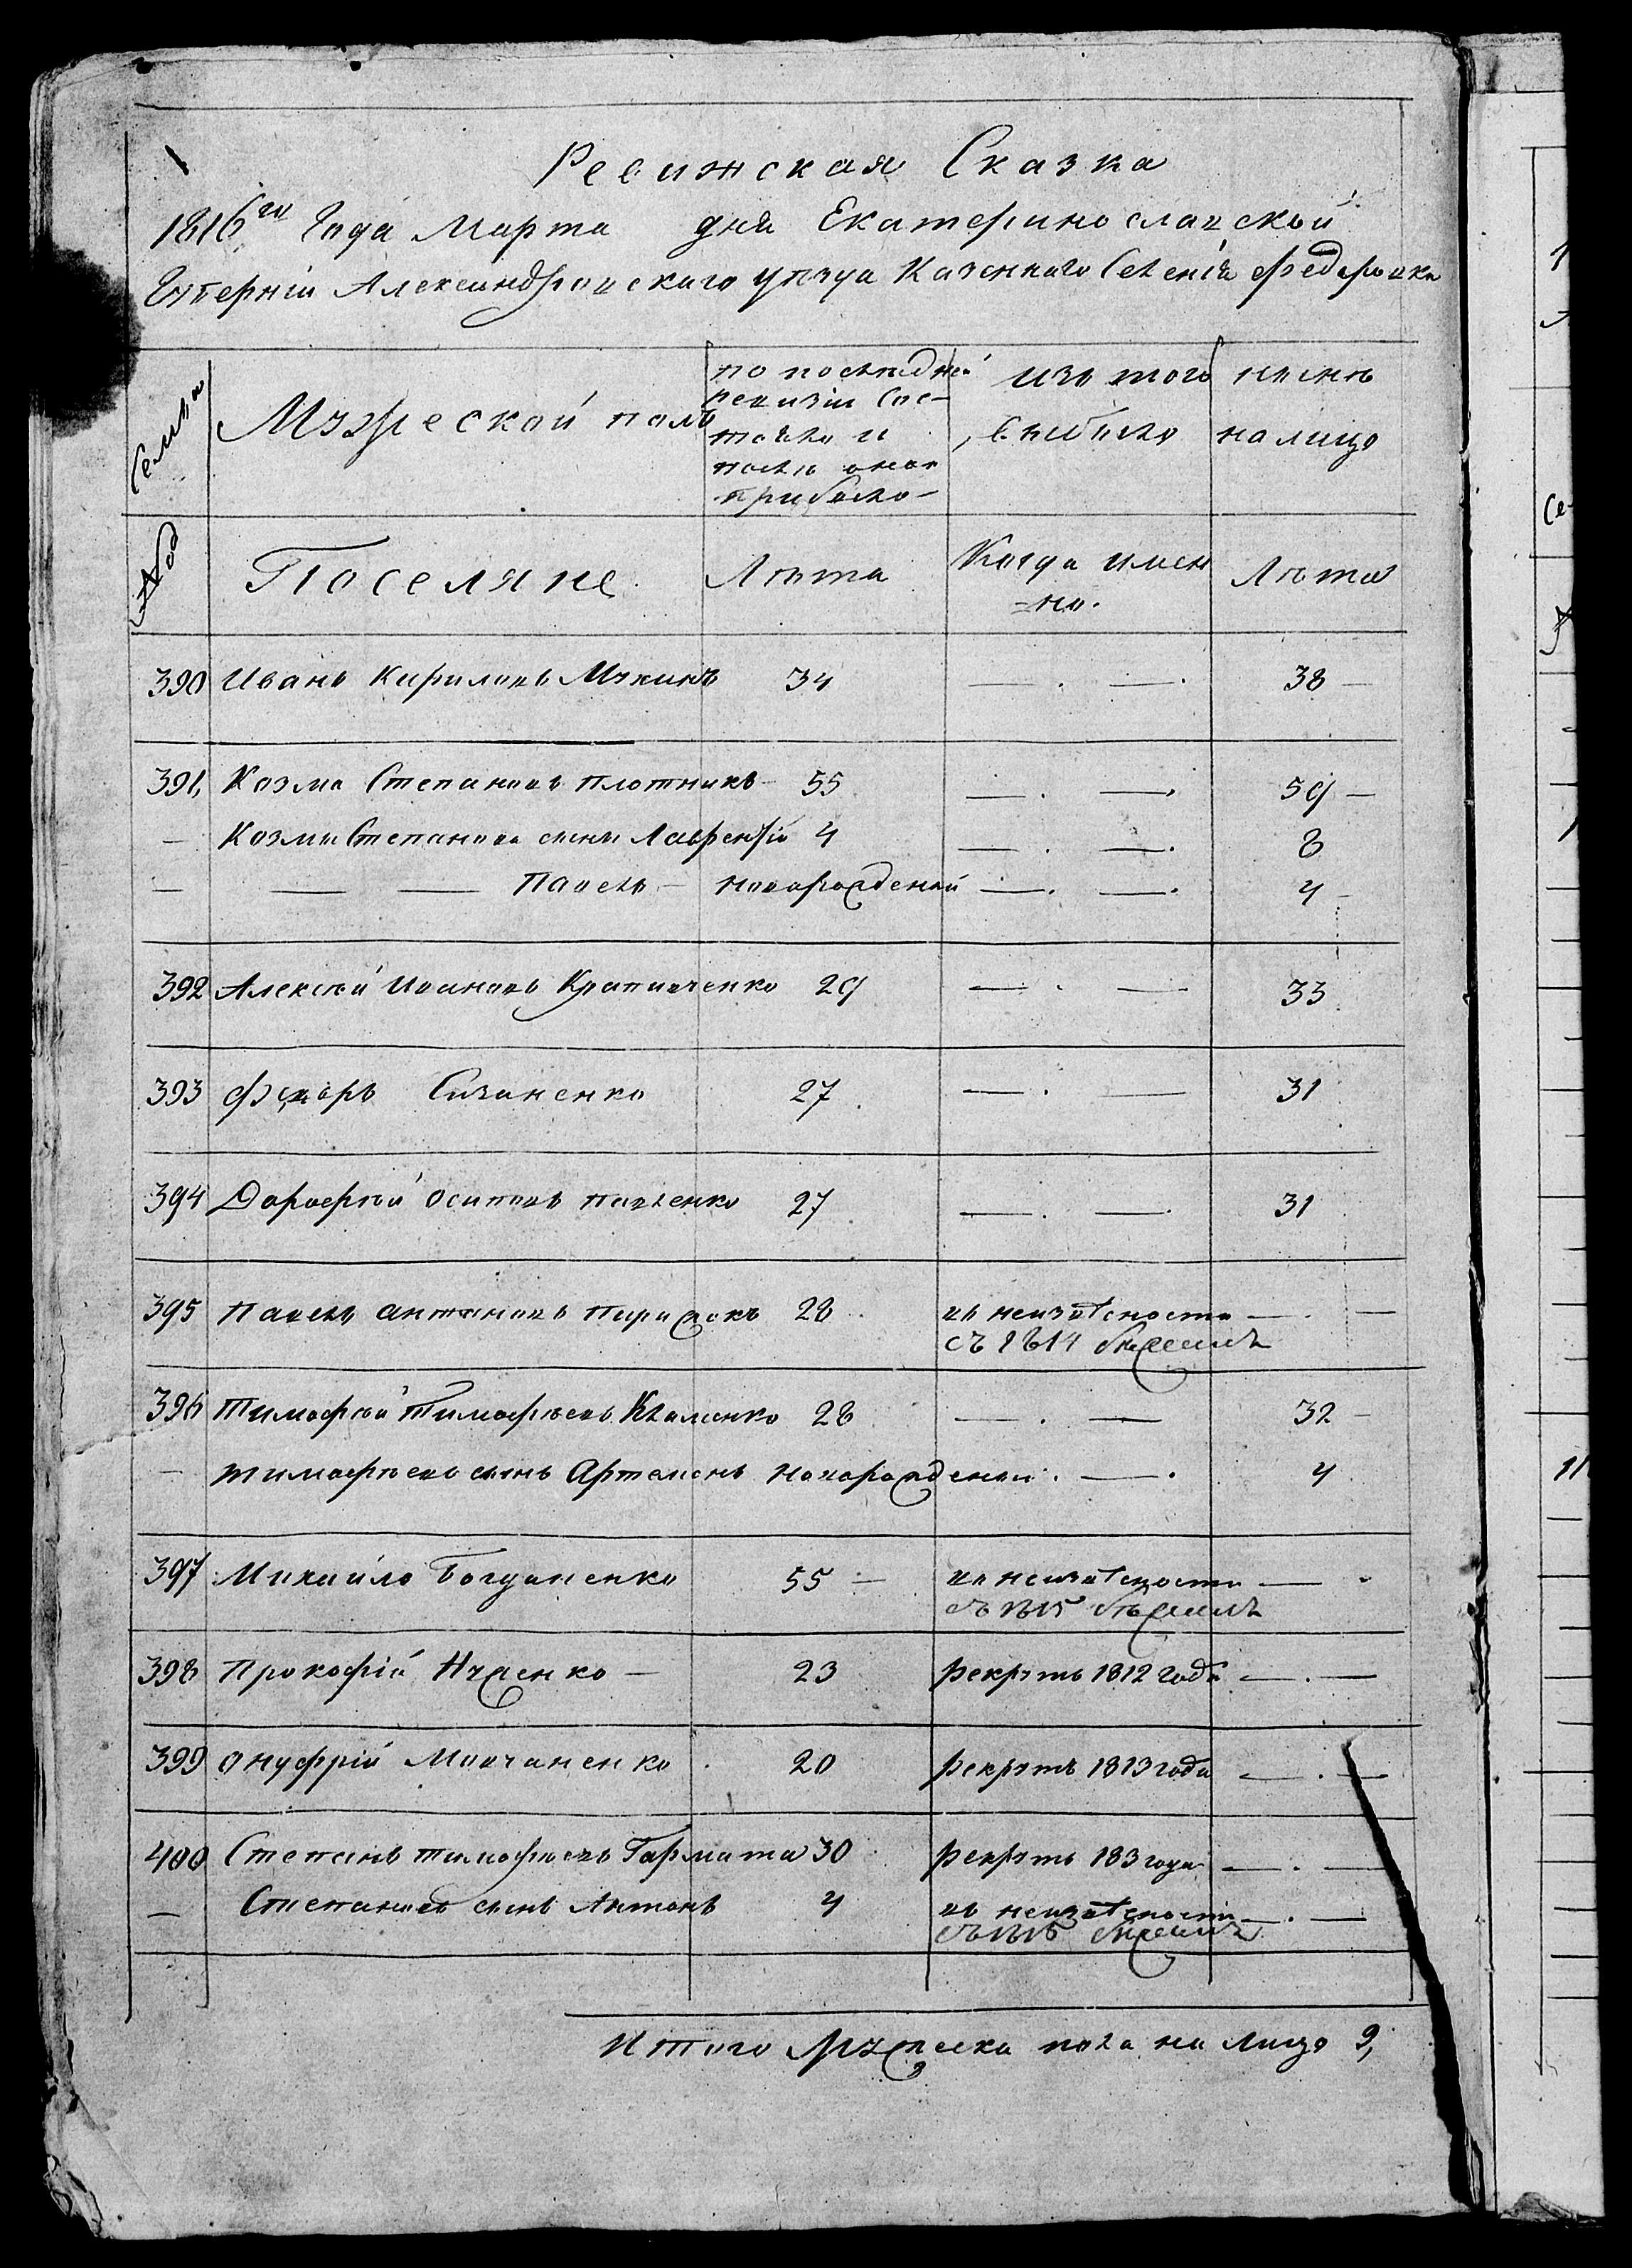 Ревижская Сказка
1816го Года Марта дня Екатеринославской
Губерніи Александровскаго уѣзда Казеннаго Селенія Федоровка
Семьи
Мужеской полъ
по последней
ревизіи сос-
тояло и
послѣ оной
прибыло-
изъ того
выбыло
нынѣ
на лицо
Поселяне
Лѣта
Когда имен
=но.
Лѣта
390 Иванъ Кириловъ 34 38
391, Козма Степановъ Плотникъ 55 59
Козмы Степанова сынъ Лаврентій 4 8
Павелъ новорожденой 4
392 Алексѣй Ивановъ Крапивченко 29 33
393 Федоръ Сизаненко 27 31
394 Дорофѣй Осиповъ Павленко 27 31
395 Павелъ Антоновъ 28 въ неизвѣсности
съ 1814 бѣжалъ
396 Тимофѣй Тимофѣевъ 28 32
Тимофѣевъ сынъ Артемонъ новорожденой 4
397 Михайло Богданенко 55 въ неизвѣсности
съ 1815
398 Прокофій 23 рекрутъ 1812 года
399 Онуфрій Мовчаненко 20 рекрутъ 1813 года
400 Степанъ Тимофѣевъ Гармата 30 рекрутъ 183 года
Степановъ сынъ Антонъ 4 въ неизвѣсности
съ 1815
Итого Мужеска пола на лицо 9,